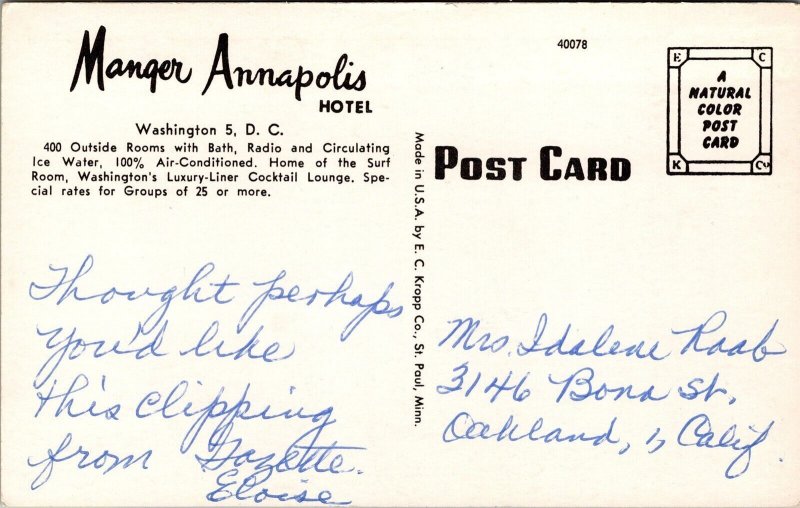 Manger Annapolis
HOTEL
Washington 5, D. C.
400 Outside Rooms with Bath, Radio and Circulating
Ice Water, 100% Air-Conditioned. Home of the Surf
Room, Washington's Luxury-Liner Cocktail Lounge. Spe-
cial rates for Groups of 25 or more.
Thought perhaps
You'd like
this clipping
from Gazette.
Eloise
Made in U.S.A. by E. C. Kropp Co., St. Paul, Minn.
40078
POST CARD
E C
A
NATURAL
COLOR
POST
CARD
K Co
Mrs. Idalene Raab
3146 Bona St.
Oakland, 1, Calif.